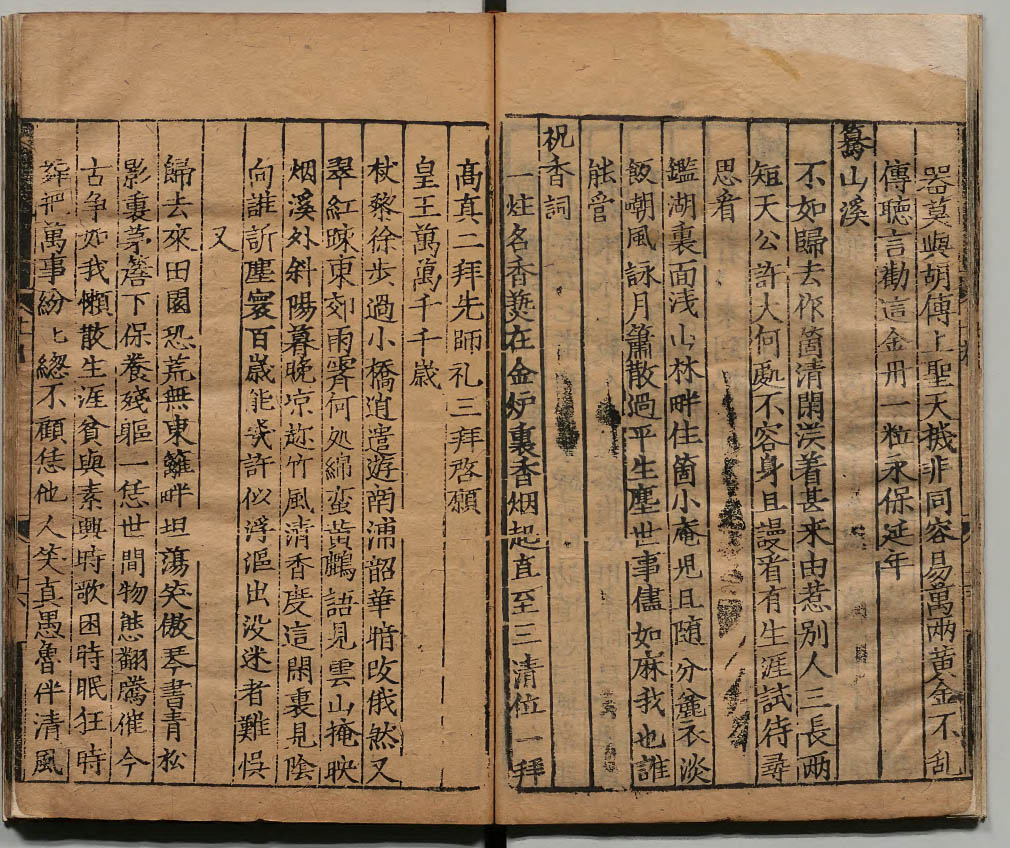 器莫與胡傳上聖天機非同容易萬兩黄金不乱
傳聽言勸這金丹一粒永保延年
驀山溪
不如歸去作箇清閑漢着甚来由惹別人三長兩
短天公許大何處不容身且謾肴有生涯試待尋
思看
鑑湖裏面浅山林畔住箇小庵児且随分麄衣淡
飯嘲風詠月蕭散過平生塵世事儘如麻我也誰
能管
祝香詞
一炷名香爇在金炉裏香烟起直至三清位一拜
髙真二拜先師礼三拜啓願
皇王萬萬千千歳
杖藜徐步過小橋逍遥遊南浦韶華暗改俄然又
翠紅踈東郊雨霽何処綿蛮黄鸝語見雲山掩映
烟溪外斜陽暮晚凉趂竹風清香度這閑裏見陰
向誰訴塵寰百歳能幾許似浮漚出没迷者難悮
又
歸去來田園恐荒無東籬畔坦蕩笑傲琴書青松
影裏茅簷下保養殘軀一恁世間物態翻騰催今
古争如我懶散生涯貧與素興時歌困時眠狂時
舞把萬事紛〻總不顧恁他人笑真愚魯伴清風